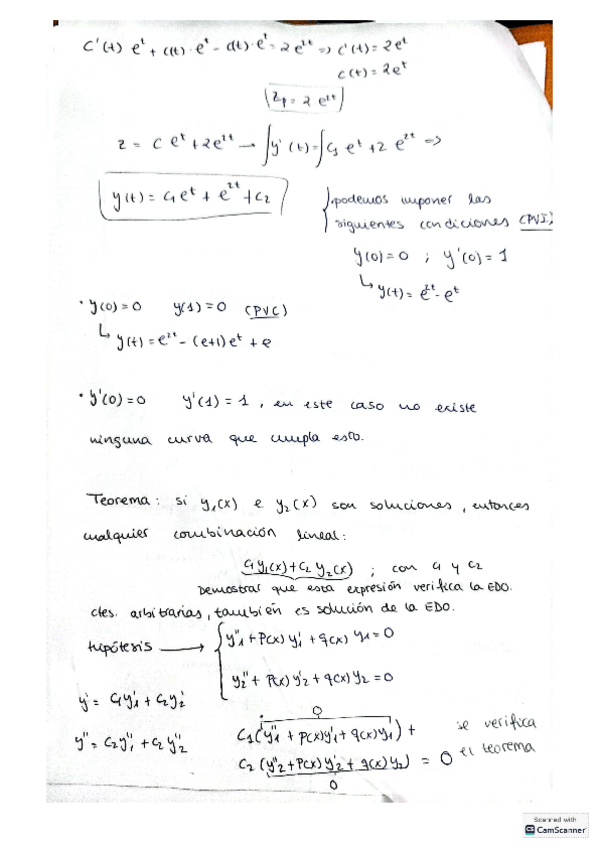 C'(t) e^t + c(t)·e^t - c(t)·e^t = 2e^{2t} => c'(t) = 2e^t
c(t) = 2e^t
Zp = 2 e^{2t}
z = c e^t + 2e^{2t} → ∫y'(t) = ∫c₁ e^t + 2 e^{2t} =>
y(t) = c₁e^t + e^{2t} + c₂
podemos imponer las
siguientes condiciones (PVI)
y(0)=0 ; y'(0)=1
↳ y(t) = e^{2t} - e^t
· y(0)=0 y(1)=0 (PVC)
↳ y(t) = e^{2t} - (e+1)e^t + e
· y'(0)=0 y'(1)=1, en este caso no existe
ninguna curva que cumpla esto.
Teorema: si y₁(x) e y₂(x) son soluciones, entonces
cualquier combinación lineal:
c₁y₁(x)+c₂ y₂(x) ; con c₁ y c₂
Demostrar que esta expresión verifica la EDO.
ctes. arbitrarias, también es solución de la EDO.
hipótesis → y₁'' + P(x) y₁' + q(x) y₁ = 0
y₂'' + P(x) y₂' + q(x) y₂ = 0
y' = c₁y₁' + c₂y₂'
y'' = c₂y₁'' + c₂ y₂''
0
c₁(y₁'' + p(x)y₁' + q(x)y₁) +
c₂ (y₂'' + P(x)y₂' + q(x)y₂) = 0
0
se verifica
el teorema
Scanned with
CS CamScanner